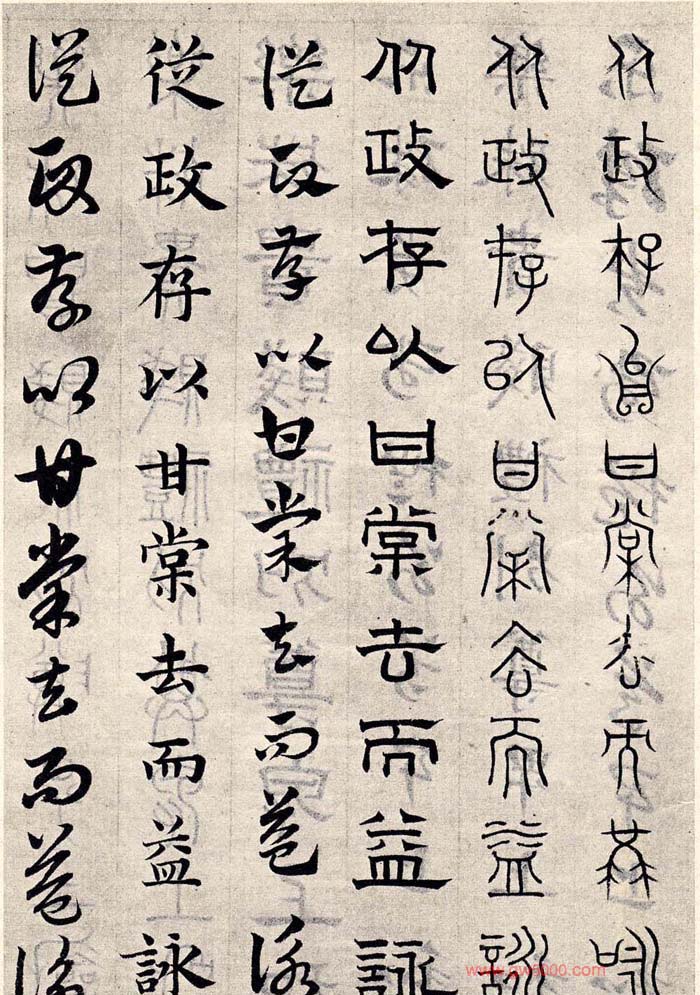 从政存以甘棠去而益咏
从政存以甘棠去而益詠
从政存以甘棠去而益詠
從政存以甘棠去而益詠
從政存以甘棠去而益詠
從政存以甘棠去而益詠